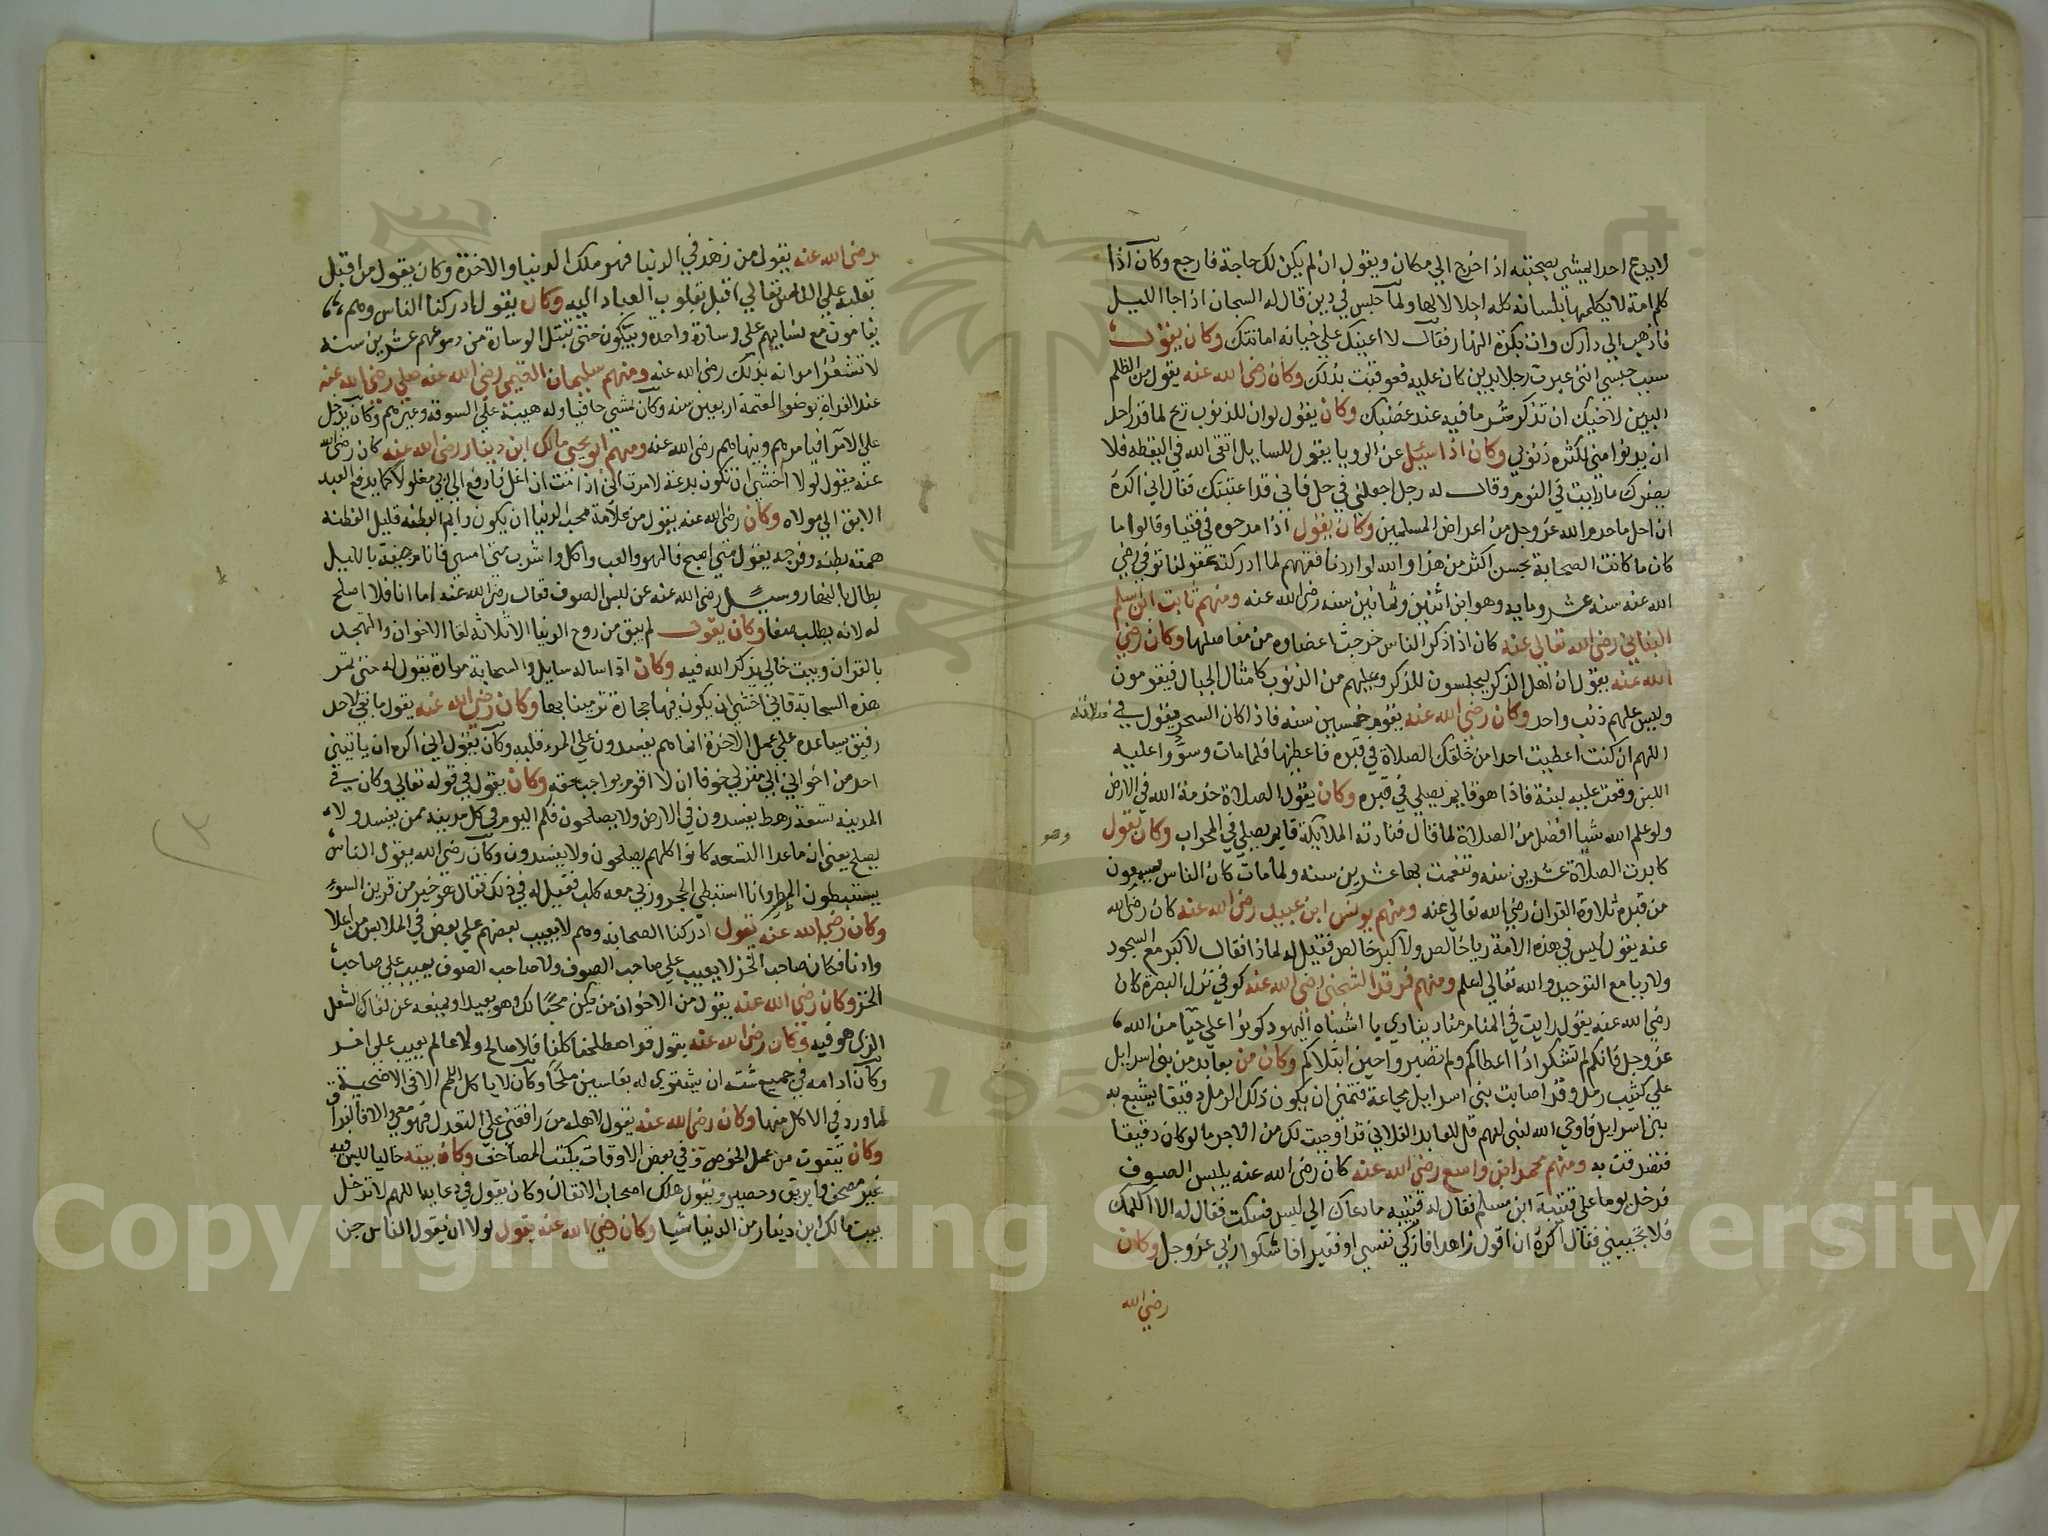 لا يدع احدا يمشي بصحبته اذا خرج الي مكان ويقول ان لم يكن لك حاجة فارجع وكان اذا
كلم امه لا يكلمها بلسانه كله اجلالا لها ولما حبس في دين قال له السجان اذا جا الليل
فاذهب الي دارك وات بكرة النهار فقال لا اعينك علي خيانه امانتك وكان يقول
سبب حبسي انني عيرت رجلا بدين كان عليه فعوقبت بذلك وكان رضي الله عنه يقول من الظلم
البين لاخيك ان تذكر شر ما فيه عند غضبك وكان يقول لو ان للذنوب ريح لما قدر احد
ان يدنوا مني لكثرة ذنوبي وكان اذا سيل عن الرويا يقول للسايل اتقي الله في اليقظه فلا
يضرك ما رايت في النوم وقال له رجل اجعلني في حل فاني قد اغتبتك فقال اني اكره
ان احل ما حرم الله عز وجل من اعراض المسلمين وكان يقول اذا مدحوه في فتيا وقالوا ما
كان ما كانت الصحابة تحسن اكثر من هذا والله لو اردنا فقههم لما ادركته عقولنا توفي رضي
الله عنه سنه عشر ومايه وهو ابن اثنين وثمانين سنه رضي الله عنه ومنهم ثابت ابن سلم
البناني رضي الله تعالي عنه كان اذا ذكر الناس خرجت اعضاوه من مفاصلها وكان رضي
الله عنه يقول ان اهل الذكر ليجلسون للذكر وعليهم من الذنوب كامثال الجبال فيقومون
وليس عليهم ذنب واحد وكان رضي الله عنه يقوم خمسين سنه فاذا كان السحر يقول في
اللهم ان كنت اعطيت احدا من خلقك الصلاة في قبره فاعطنيها فلما مات وسووا عليه
اللبن وقعت عليه لبنة فاذا هو قايم يصلي في قبره وكان يقول الصلاة خدمة الله في الارض
ولو علم الله شيا افضل من الصلاة لما قال فنادته الملايكة قايم يصلي في المحراب وكان يقول
وهو
كابدت الصلاة عشرين سنه وتنعمت بها عشرين سنه ولما مات كان الناس يسمعون
من قبره تلاوة القران رضي الله تعالي عنه ومنهم يونس ابن عبيد رضي الله عنه كان رضي الله
عنه يقول ليس في هذه الامة ريا خالص ولا كبر خالص فقيل له لماذا فقال لا كبر مع السجود
ولا ريا مع التوحيد والله تعالي اعلم ومنهم فرقد السنجي رضي الله عنه كوفي نزل البصرة كان
رضي الله عنه يقول رايت في المنام مناد ينادي يا اشباه اليهود كونوا علي حيا من الله
عز وجل فانكم لم تشكروا اذا اعطاكم ولم تصبروا حين ابتلاكم وكان من بعابد من بني اسرايل
علي كثيب رمل وقد اصابت بني اسرايل مجاعة فتمني ان يكون ذلك الرمل دقيقا يشبع به
بني اسرايل فاوحي الله لنبي لهم قل للعابد الفلاني قد اوجبت لك من الاجر ما لو كان دقيقا
فتصدقت به ومنهم محمد ابن واسع رضي الله عنه كان رضي الله عنه يلبس الصوف
فدخل يوما علي قتيبة ابن مسلم فقال له قتيبه ما دعاك الي لبس فسكت فقال له الا اكلمك
فلا تجيبني فقال اكره ان اقول زاهدا فازكي نفسي او فقيرا فاشكوا ربي عز وجل وكان
رضي الله
رضي الله عنه يقول من زهد في الدنيا فهو ملك الدنيا والاخرة وكان يقول من اقبل
بقلبه علي الله تعالي اقبل بقلوب العباد اليه وكان يقول ادركنا الناس وهم
ينامون مع نسايهم علي وسادة واحدة ويبكون حتي تبتل الوسادة من دموعهم عشرين سنه
لا تشعر امراته بذلك رضي الله عنه ومنهم سليمان التيمي رضي الله عنه صلي رضي الله عنه
عنه الغداة بوضو العتمة اربعين سنه وكان يمشي حافيا وله هيبة علي السوقة وغيرهم وكان يدخل
علي الامرا فيامرهم وينهاهم رضي الله عنه ومنهم ابو يحيي مالك ابن دينار رضي الله عنه كان رضي الله
عنه يقول لولا اخشي ان تكون بدعة لامرت اني اذا مت ان اغل فادفع الي ربي مغلولا كما يدفع العبد
الابق الي مولاه وكان رضي الله عنه يقول من علامة محب الدنيا ان يكون دايم البطنه قليل الفطنه
همته بطنه وفرجه يقول متي اصبح فالهو والعب واكل واشرب متي امسي فانام جيفة بالليل
بطال بالنهار وسيل رضي الله عنه عن لبس الصوف فقال رضي الله عنه اما انا فلا اصلح
له لانه يطلب صفا وكان يقول لم يبق من روح الدنيا الا ثلاثة لقا الاخوان والتهجد
بالقران وبيت خالي يذكر الله فيه وكان اذا ساله سايل والسحابة مارة يقول له حتي تمر
هذه السحابة فاني اخشي ان يكون فيها حجارة ترمينا بها وكان رضي الله عنه يقول ما بقي لاحد
رفيق يساعده علي عمل الاخرة انما هم يفسدون علي المرء قلبه وكان يقول اني اكره ان ياتيني
احد من اخواني الي منزلي خوفا ان لا اقوم بواجب حقه وكان يقول في قوله تعالي وكان في
المدينة تسعة رهط يفسدون في الارض ولا يصلحون فكم اليوم في كل مدينه ممن يفسد ولا
يصلح يعني ان ما عدا التسعه كانوا كلهم يصلحون ولا يفسدون وكان رضي الله يقول الناس
يستبطون المطر وانا استبطي الحجر وزبي معه كلب فقيل له في ذلك فقال هو خير من قرين السوء
وكان رضي الله عنه يقول ادركنا الصحابه وهم لا يعيب بعضهم علي بعض في الملابس من اعلا
وادنا فكان صاحب الخز لا يعيب علي صاحب الصوف ولا صاحب الصوف يعيب علي صاحب
الخز وكان رضي الله عنه يقول من الاخوان من يكن محبا لك وهو بعيد اويمنعه عن لقاك الشغل
الذي هو فيه وكان رضي الله عنه يقول قد اصطلحنا كلنا فلا صالح ولا عالم يعيب علي اخر
وكان ادامه في جميع سنته ان يشتوي له بفلسين ملحا وكان لا ياكل اللحم الا في الاضحية
لما ورد في الاكل منها وكان رضي الله عنه يقول لاهله من وافقني علي التقلل فهو معي والا فالفراق
وكان يتقوت من عمل الخوص وفي بعض الاوقات يكتب المصاحف وكان بيته خاليا ليس فيه
غير مصحف وابريق وحصير ويقول هلك اصحاب الاثقال وكان يقول في دعايه اللهم لا تدخل
بيت مالك ابن دينار من الدنيا شيا وكان رضي الله عنه يقول لولا ان يقول الناس جن
Copyright © King Saud University